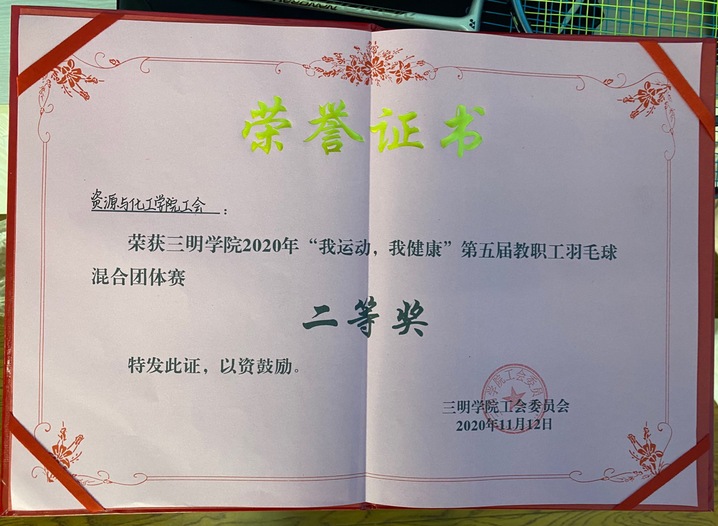 荣誉证书
资源与化工学院工会：
荣获三明学院2020年“我运动，我健康”第五届教职工羽毛球
混合团体赛
二等奖
特发此证，以资鼓励。
学院工会委员
三明学院工会委员会
2020年11月12日